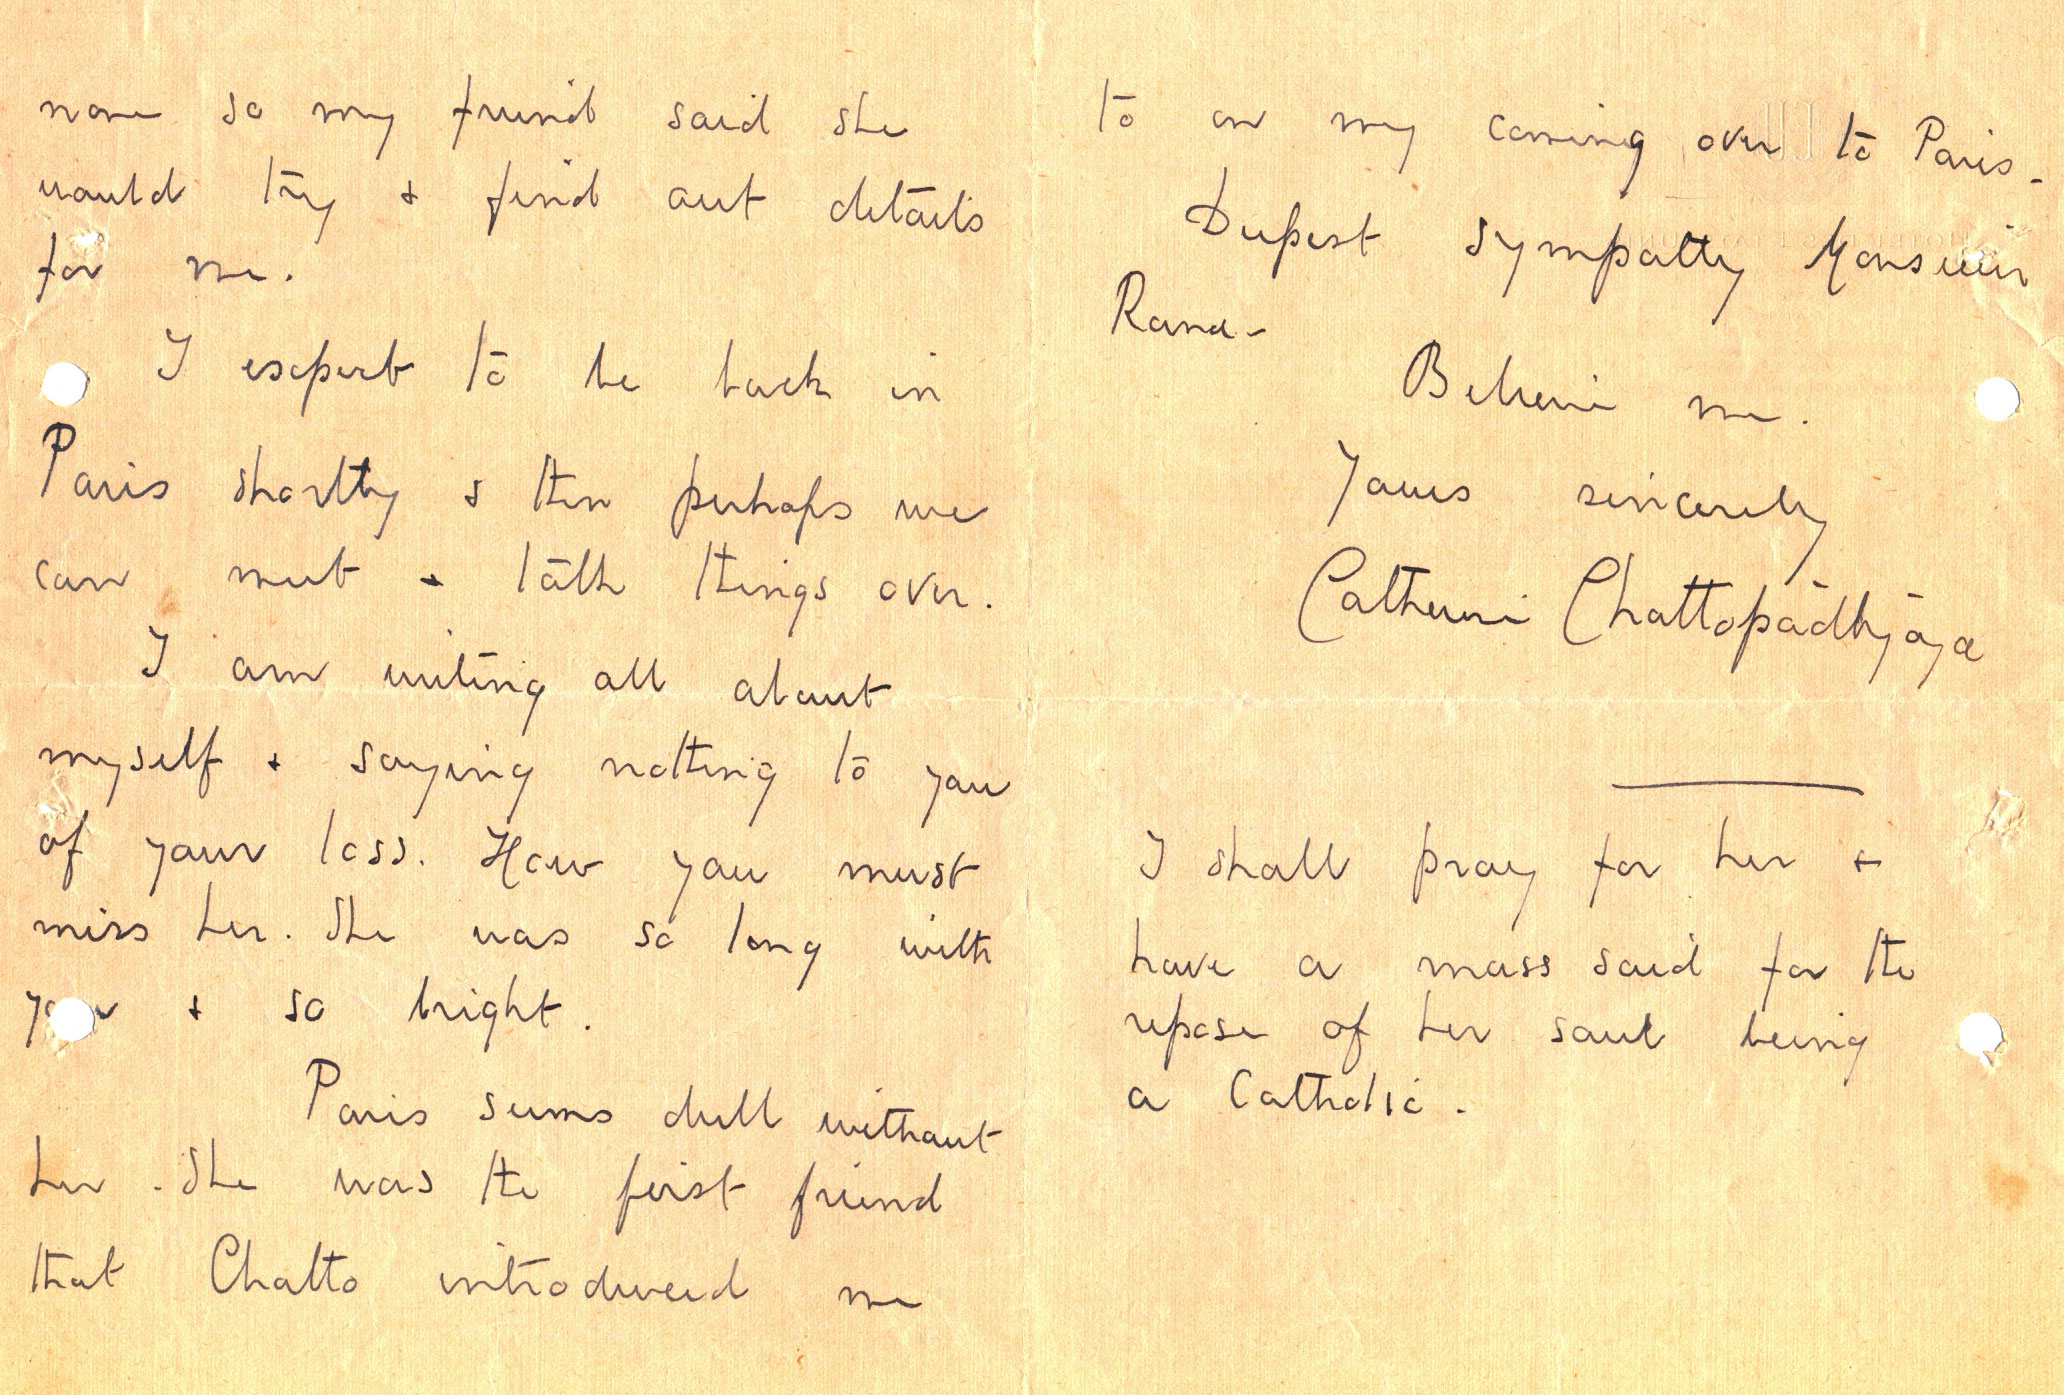 none so my friend said she
would try & find out details
for me.
I expect to be back in
Paris shortly & then perhaps we
can meet & talk things over.
I am writing all about
myself & saying nothing to you
of your loss. How you must
miss her. She was so long with
you & so bright.
Paris seems dull without
her. She was the first friend
that Chatto introduced me
to on my coming over to Paris.
Deepest sympathy Monsieur
Rana-
Believe me.
Yours sincerely
Catherine Chattopādhyāya
I shall pray for her &
have a mass said for the
repose of her soul being
a Catholic.